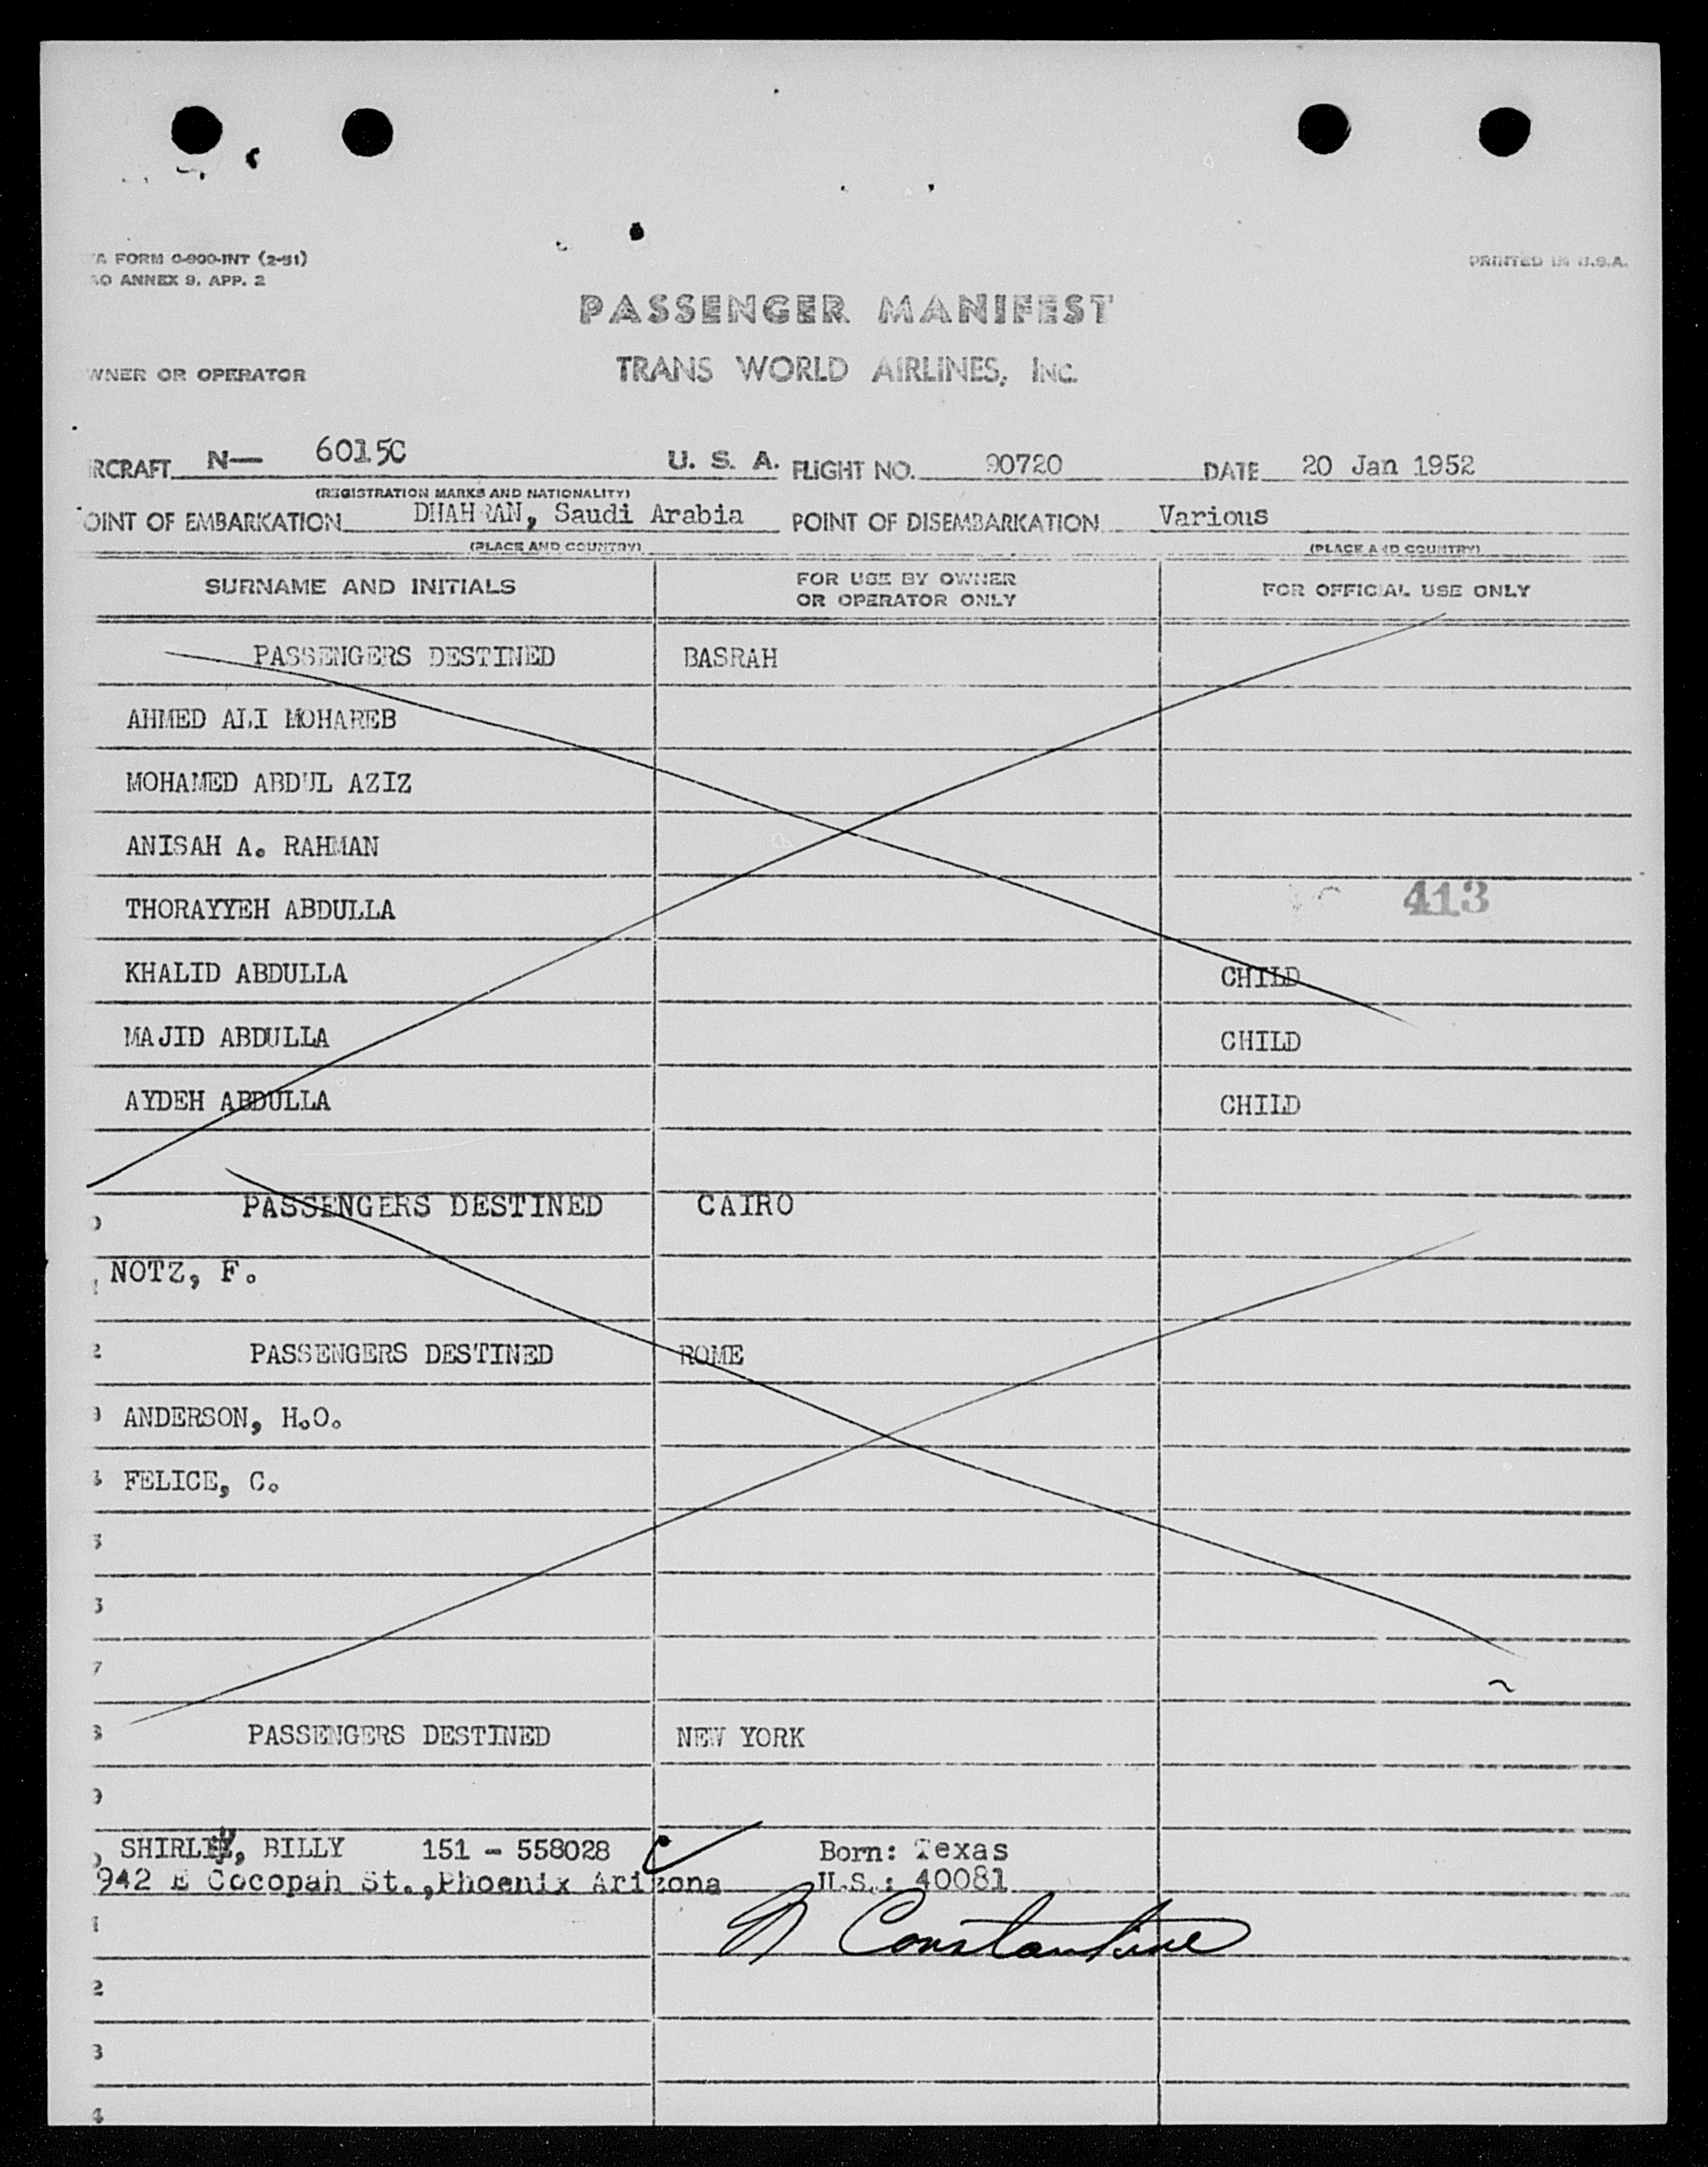 A FORM O-900-INT (2-51)
AO ANNEX 9, APP. 2
PRINTED IN U.S.A.
PASSENGER MANIFEST
WNER OR OPERATOR TRANS WORLD AIRLINES, INC.
RCRAFT N— 6015C U. S. A. FLIGHT NO. 90720 DATE 20 Jan 1952
(REGISTRATION MARKS AND NATIONALITY)
OINT OF EMBARKATION DHAHRAN, Saudi Arabia POINT OF DISEMBARKATION Various
(PLACE AND COUNTRY) (PLACE AND COUNTRY)
SURNAME AND INITIALS FOR USE BY OWNER OR OPERATOR ONLY FOR OFFICIAL USE ONLY
PASSENGERS DESTINED BASRAH
AHMED ALI MOHAREB
MOHAMED ABDUL AZIZ
ANISAH A. RAHMAN
THORAYYEH ABDULLA 413
KHALID ABDULLA CHILD
MAJID ABDULLA CHILD
AYDEH ABDULLA CHILD
0 PASSENGERS DESTINED CAIRO
NOTZ, F.
2 PASSENGERS DESTINED ROME
3 ANDERSON, H.O.
4 FELICE, C.
5
6
7
8 PASSENGERS DESTINED NEW YORK
9
0 SHIRLEY, BILLY 151 - 558028 Born: Texas
942 E Cocopah St.,Phoenix Arizona U.S.: 40081
1 N Constantine
2
3
4